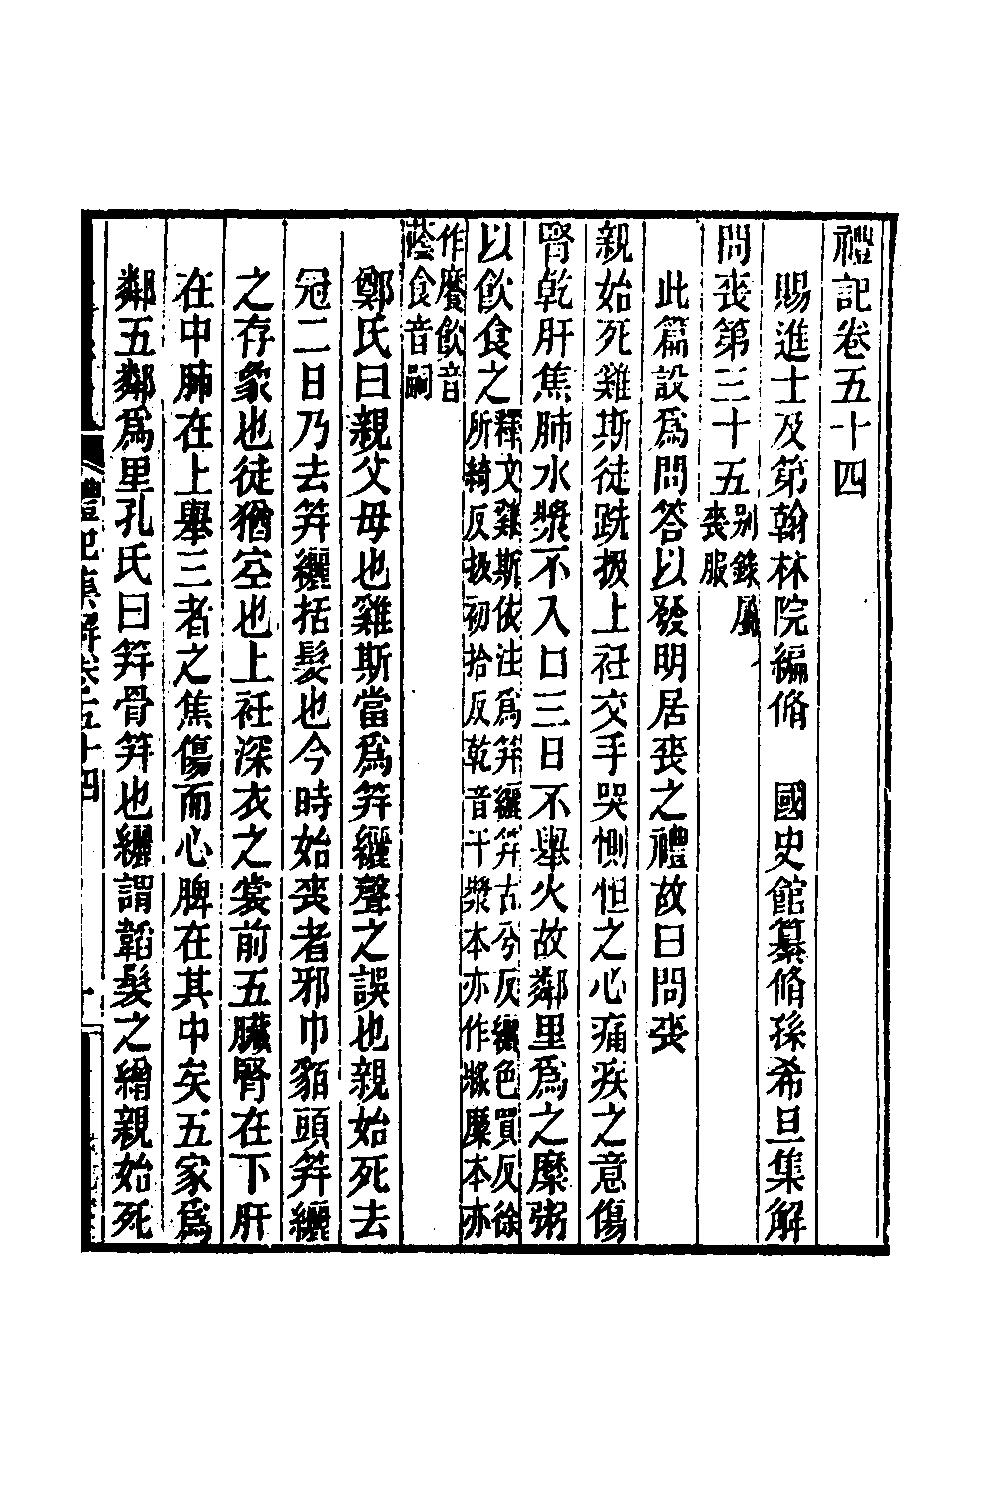 禮記卷五十四
賜進士及第翰林院編脩　國史館纂脩孫希旦集解
問喪第三十五别錄屬喪服
此篇設爲問答以發明居喪之禮故曰問喪
親始死雞斯徒跣扱上衽交手哭惻怛之心痛疾之意傷
腎乾肝焦肺水漿不入口三日不舉火故鄰里爲之糜粥
以飲食之釋文雞斯依注爲笄纚笄古兮反纚色買反徐所綺反扱初拾反乾音干漿本亦作㢡糜本亦
作䊳飲音蔭食音嗣
鄭氏曰親父母也雞斯當爲笄纚聲之誤也親始死去
冠二日乃去笄纚括髮也今時始喪者邪巾貊頭笄纚
之存象也徒猶空也上衽深衣之裳前五臟腎在下肝
在中肺在上舉三者之焦傷而心脾在其中矣五家爲
鄰五鄰爲里孔氏曰笄骨笄也纚謂韜髮之繒親始死
禮記集解卷五十四